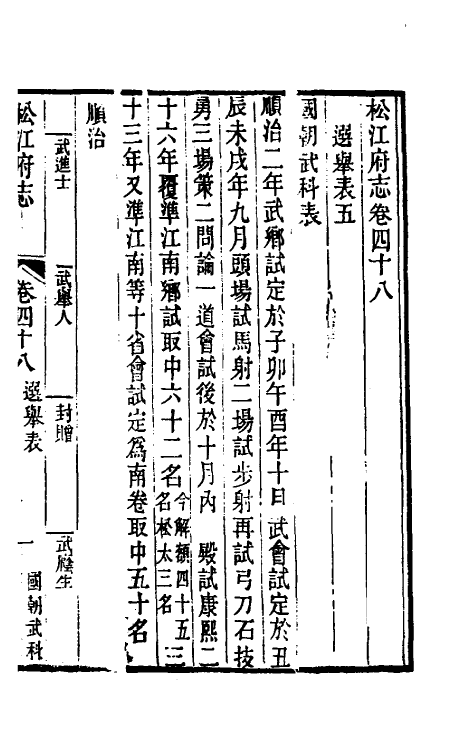 松江府志卷四十八
選舉表五
國朝武科表
順治二年武鄉試定於子卯午酉年十月武會試定於丑
辰未戌年九月頭場試馬射二場試步射再試弓刀石技
勇三場策二問論一道會試後於十月內 殿試康熙二
十六年覆準江南鄉試取中六十二名今解額四十五名松太三名三
十三年又準江南等十省會試定爲南卷取中五十名
順治
武進士 武舉人 封贈 武廕生
松江府志 卷四十八 選舉表 一 國朝武科